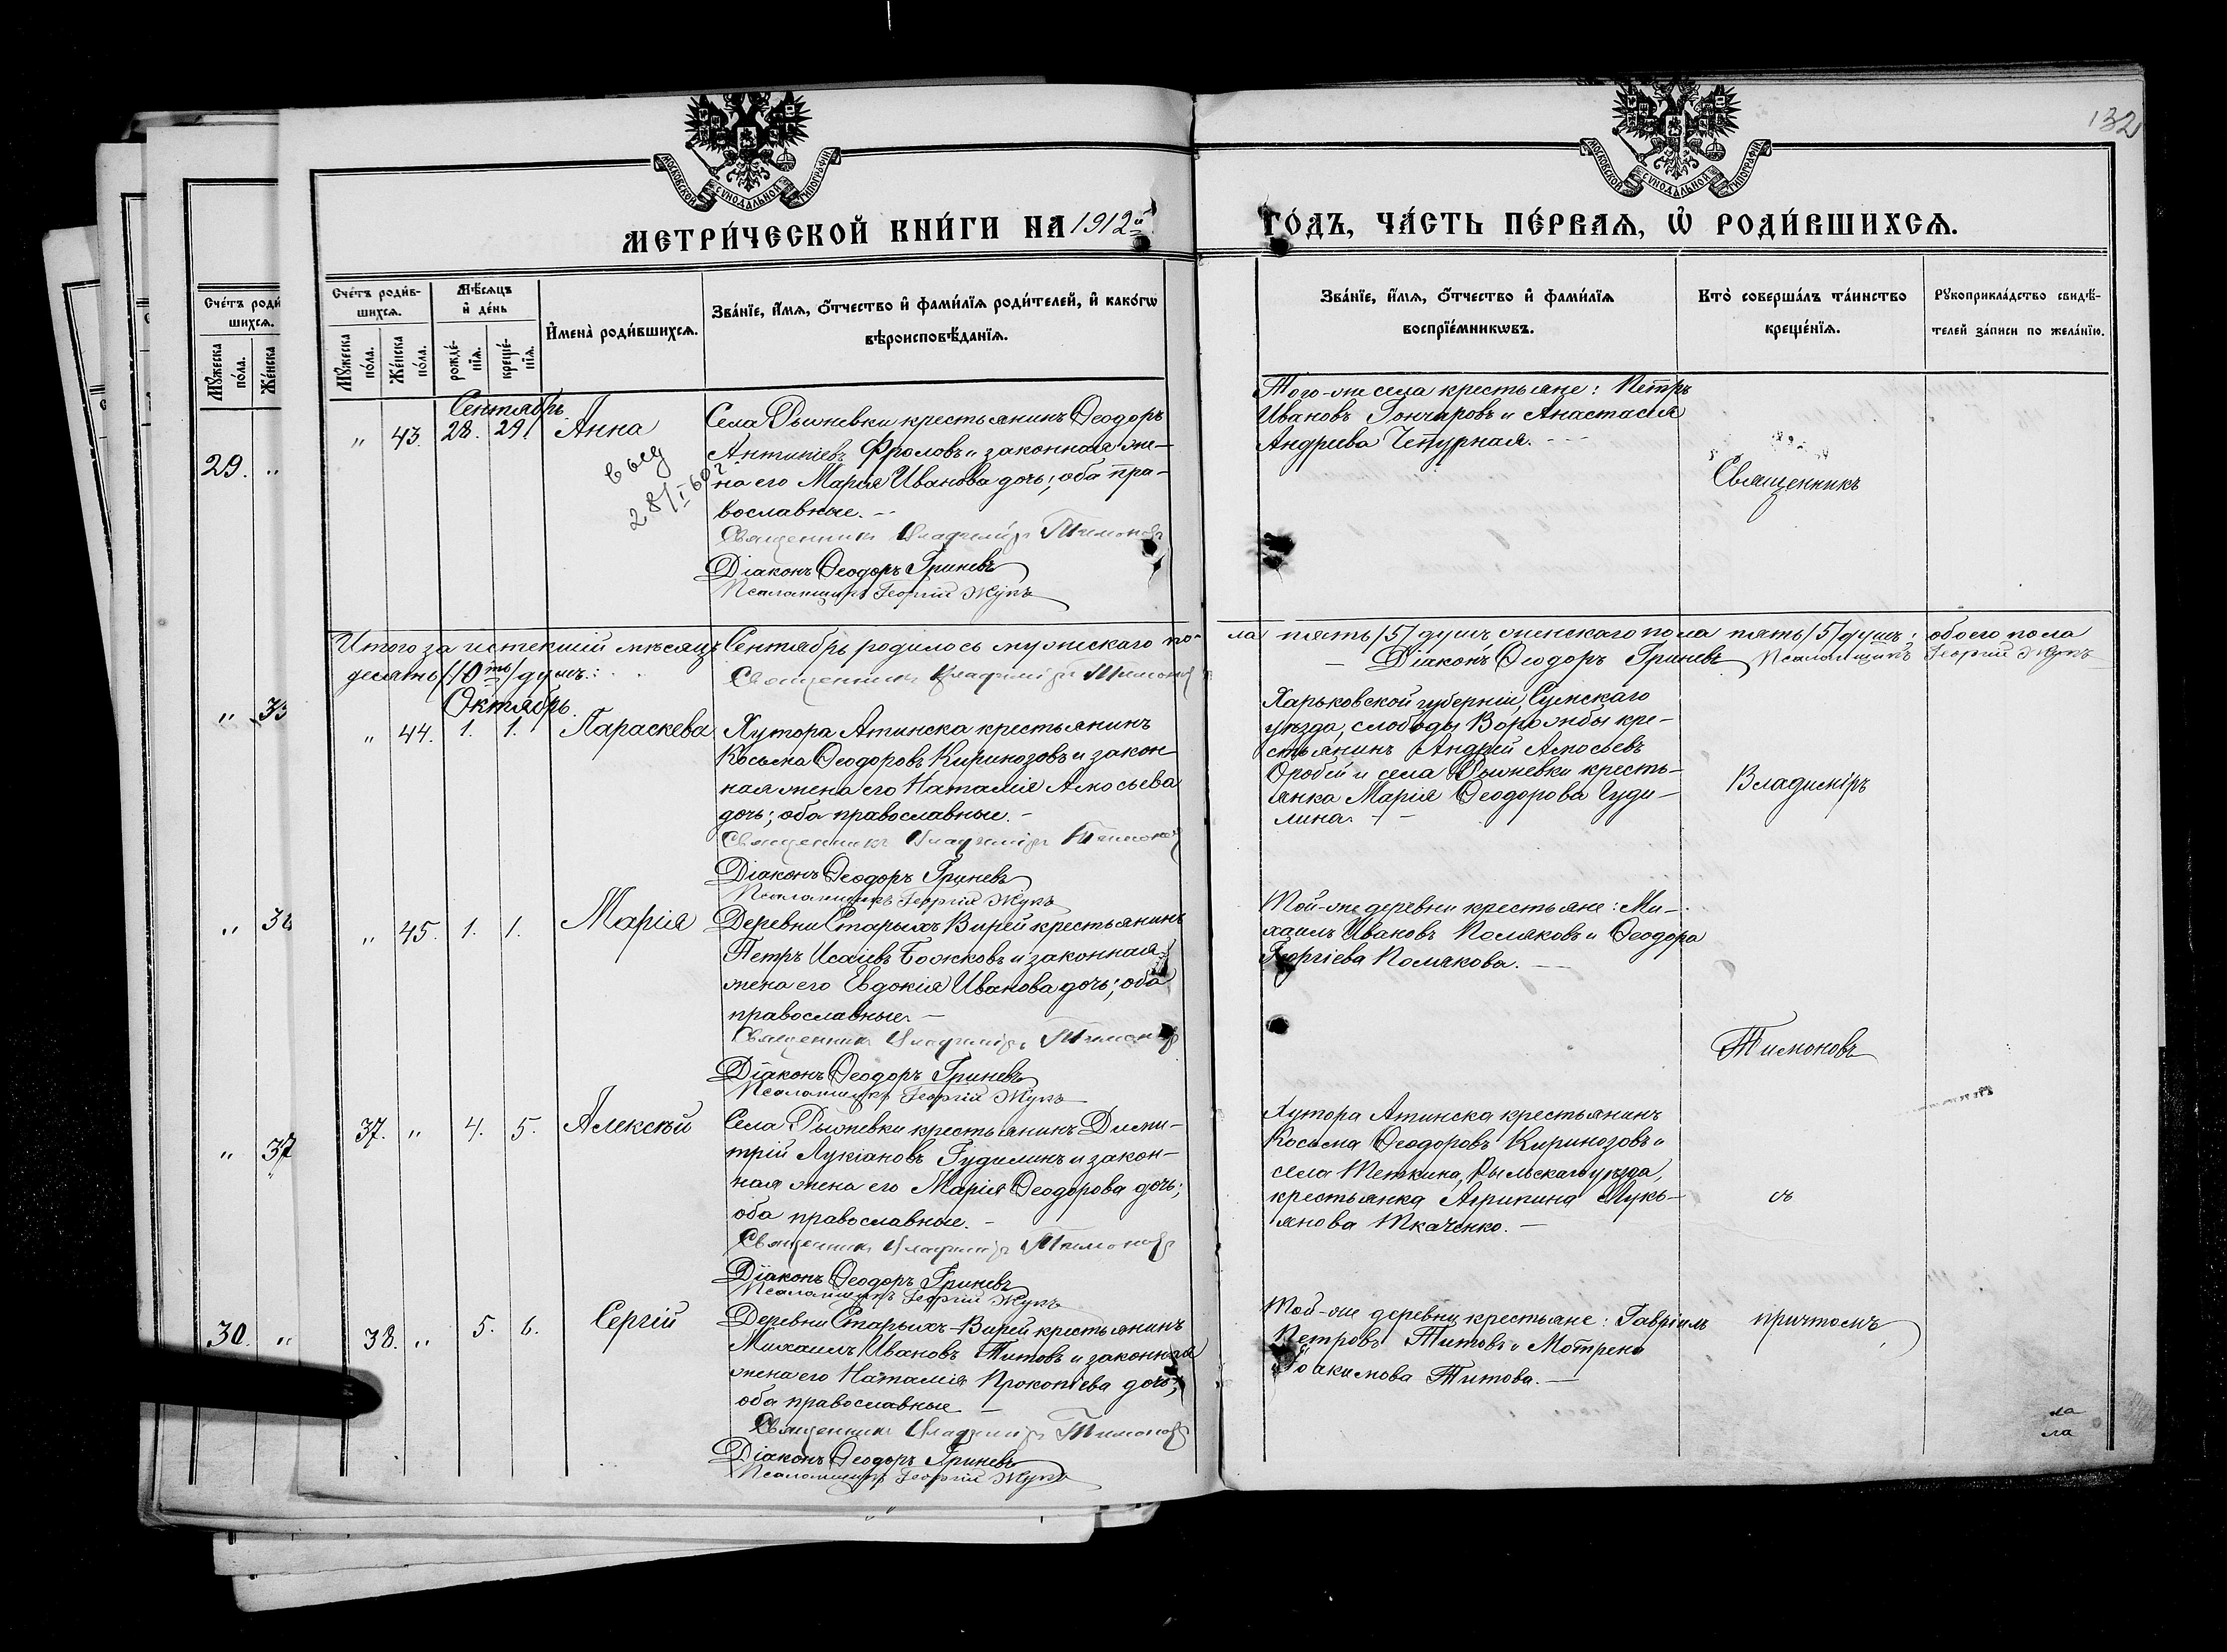 132
МОСКОВСКОЙ СѴНОДАЛЬНОЙ ТИПОГРАФІИ
МОСКОВСКОЙ СѴНОДАЛЬНОЙ ТИПОГРАФІИ
МЕТРИ́ЧЕСКОЙ КНИ́ГИ НА 1912й
ГО́ДЪ, ЧА́СТЬ ПЕ́РВАЯ, Ѡ РОДИ́ВШИХСЯ.
Сче́тъ роди
шихся.
Мꙋжеска
по́ла.
Же́нска
29. "
" 33
" 37
30. "
Сче́тъ роди́в-
шихся.
Мꙋжеска по́ла.
Же́нска по́ла.
Мѣ́сяцъ
и҆ де́нь
рожде́-
нїя.
креще́-
нїя.
И҆мена̀ роди́вшихся.
Зва́нїе, и҆́мя, ѻ҆́тчество и҆ фами́лїя роди́телей, и҆ како́гѡ
вѣроисповѣ́данїя.
Зва́нїе, и҆́мя, ѻ҆́тчество и҆ фами́лїя
воспрїе́мникѡвъ.
Кто̀ соверша́лъ та́инство
креще́нїя.
Рꙋкоприкла́дство свидѣ́-
телей за́писи по жела́нїю.
Сентябрь
" 43. 28. 29. Анна
выд
28/I 60г
Села Рыжевки крестьянинъ Ѳеодоръ
Антипіевъ Фроловъ и законная же-
на его Марія Иванова дочь; оба пра-
вославные. -
Священникъ Владиміръ Тимоновъ
Діаконъ Ѳеодоръ Гриневъ
Псаломщикъ Георгій Жукъ
Того-же села крестьяне: Петръ
Ивановъ Гончаровъ и Анастасія
Андреева Чепурная. - -
Священникъ
Итого за истекшій мѣсяцъ Сентябрь родилось мужскаго по-
ла пять /5/ душъ, женскаго пола пять /5/ душъ; обоего пола
десять /10ть/ душъ:
Священникъ Владиміръ Тимоновъ
Діаконъ Ѳеодоръ Гриневъ Псаломщикъ Георгій Жукъ
Октябрь.
" 44. 1. 1. Параскева
Хутора Атинска крестьянинъ
Косьма Ѳеодоровъ Киринозовъ и закон-
ная жена его Наталія Амосьева
дочь; оба православные. -
Священникъ Владиміръ Тимоновъ
Діаконъ Ѳеодоръ Гриневъ
Псаломщикъ Георгій Жукъ
Харьковской губерніи, Сумскаго
уѣзда, слободы Ворожбы кре-
стьянинъ Андрей Амосьевъ
Оробей и села Рыжевки кресть-
янка Марія Ѳеодорова Гуди-
лина. - -
Владиміръ
" 45. 1. 1. Марія
Деревни Старыхъ Вирей крестьянинъ
Петръ Исаіевъ Божковъ и законная
жена его Евдокія Иванова дочь; оба
православные. -
Священникъ Владиміръ Тимоновъ
Діаконъ Ѳеодоръ Гриневъ
Псаломщикъ Георгій Жукъ
Той-же деревни крестьяне: Ми-
хаилъ Ивановъ Поляковъ и Ѳеодора
Георгіева Полякова. -
Тимоновъ
37. " 4. 5. Алексѣй
Села Рыжевки крестьянинъ Дими-
трій Лукіановъ Гудилинъ и закон-
ная жена его Марія Ѳеодорова дочь;
оба православные. -
Священникъ Владиміръ Тимоновъ
Діаконъ Ѳеодоръ Гриневъ
Псаломщикъ Георгій Жукъ
Хутора Атинска крестьянинъ
Косьма Ѳеодоровъ Киринозовъ и
села Теткина, Рыльскаго уѣзда,
крестьянка Агрипина Лукь-
янова Ткаченко. -
съ
38. " 5. 6. Сергій
Деревни Старыхъ-Вирей крестьянинъ
Михаилъ Ивановъ Титовъ и законная
жена его Наталія Прокопіева дочь;
оба православные -
Священникъ Владиміръ Тимоновъ
Діаконъ Ѳеодоръ Гриневъ
Псаломщикъ Георгій Жукъ
Той-же деревни крестьяне: Гавріилъ
Петровъ Титовъ и Мотрена
Іоакимова Титова. -
причтомъ